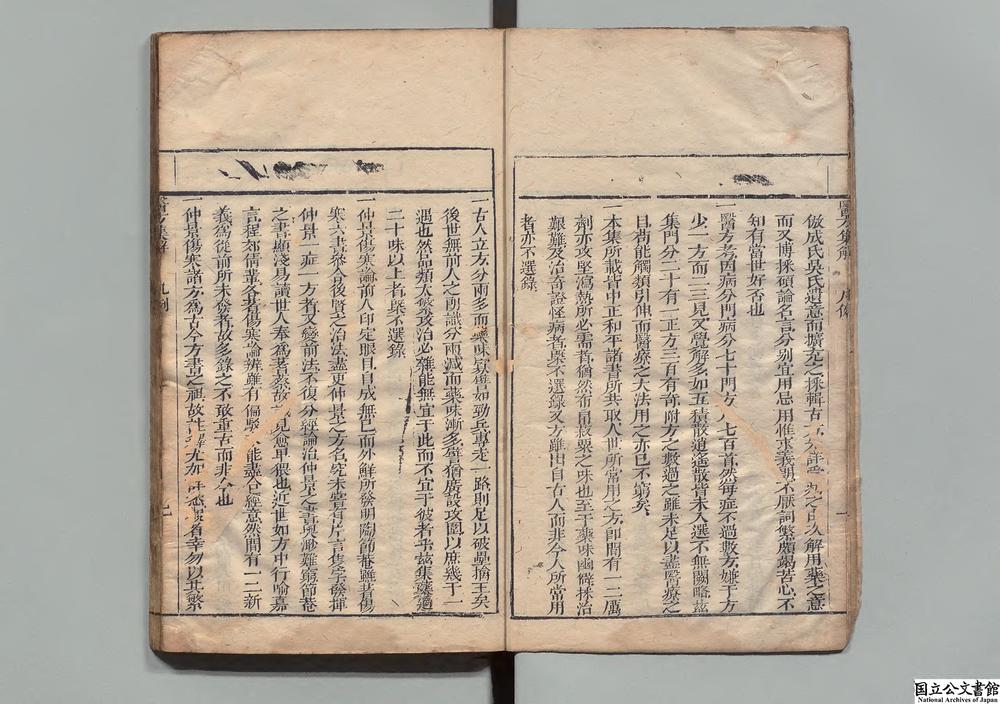 醫方集解 凡例
倣成氏吳氏遺意而擴充之採輯古 解用藥之意
而又博採碩論名言分別宜用忌用惟求義朗不厭詞繁頗竭苦心不
知有當世好否也
一醫方考因病分門病分七十門方凡七百首然每症不過數方嫌于方
少一方而二三見又覺解多如五積散逍遙散皆未入選不無闕略茲
集門分二十有一正方三百有奇附方之數過之雖未足以盡醫療之
目苟能觸類引伸而醫療之大法用之亦已不窮矣
一本集所載皆中正和平諸書所共取人世所常用之方即間有一二厲
劑亦攻堅瀉熱所必需者猶然布帛菽粟之味也至于藥味幽僻採治
艱難及治奇證怪病者槩不選錄又方雖出自古人而非今人所常用
者亦不選錄
一古人立方分兩多而藥味寡譬如勁兵專走一路則足以破壘擒王矣
後世無前人之朗識分兩減而藥味漸多譬猶廣設攻圍以庶幾于一
遇也然品類太繁攻治必雜能無宜于此而不宜于彼者乎茲集藥過
二十味以上者槩不選錄
一仲景傷寒論前人印定眼目自成無已而外鮮所發明陶節菴雖著傷
寒六書參合後賢之治法盡更仲景之方名究未嘗有片言隻字發揮
仲景一症一方者又變前法不復分經論治仲景之書奧渺難窮節菴
之書顯淺易讀世人奉為蓍蔡故 見愈卑猥也近世如方中行喻嘉
言程郊倩輩各著傷寒論辨雖有偏駁 能盡合經意然間有一二新
義為從前所未發者故多錄之不敢重古而非今也
一仲景傷寒諸方為古今方書之祖故註釋尤加詳悉 者幸勿以其繁
醫方集解 凡例
国立公文書館
National Archives of Japan